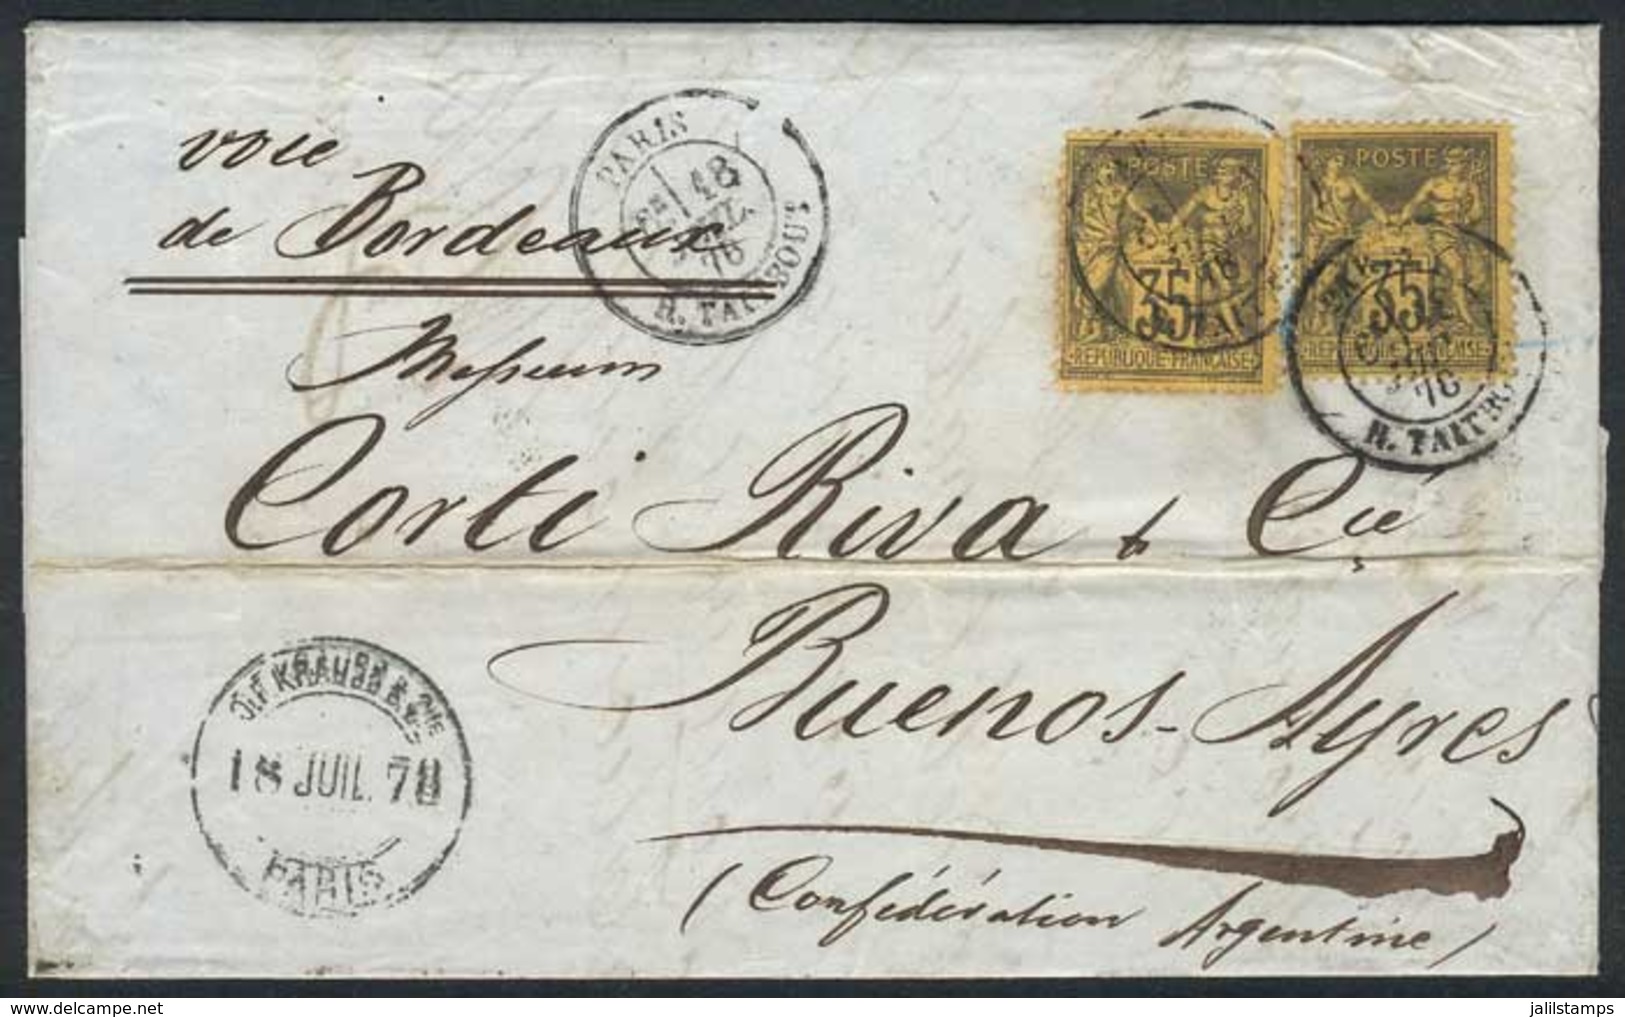 voie
de Bordeaux
PARIS
18
JUIL.
78
R. TAITBOUT
POSTE
35
REPUBLIQUE FRANÇAISE
POSTE
35
78
R. TAITBO
Messieurs
Corti Riva & Cie
Buenos-Ayres
(Confédération Argentine)
KRAUSS & CIE
18 JUIL. 78
PARIS
delcampe.net
jalilstamps